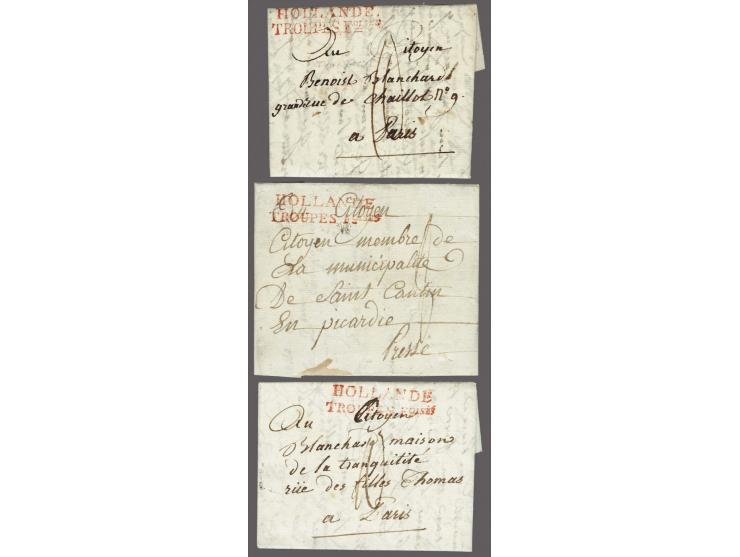 HOLLANDE.
TROUPES F.ÇAISES
Au Citoyen
Benoist Blanchard
grande rue de Chaillot N.º 9.
a Paris
HOLLANDE
TROUPES
Citoyen
Citoyen membre de
La municipalité
De Saint Cantin
En picardie
Pressé
HOLLANDE
TROUPES
Au Citoyen
Blanchard maison
de la tranquilité
rüe des filles Thomas
a Paris